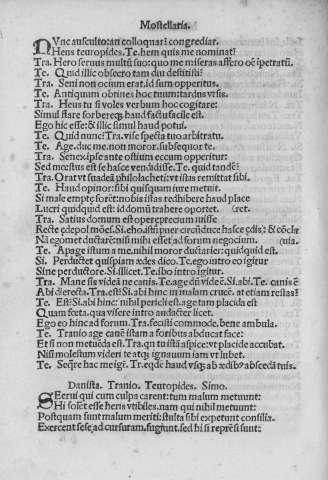 Mostellaria.
NVnc auſculto: an colloquar? congrediar.
Heus teuropides. Te. hem quis me nominat?
Tra. Hero ſeruus multū ſuo: quo me miſeras affero oē ipetratū.
Te. Quid illic obſecro tam diu deſtitiſti?
Tra. Seni non ocium erat. id ſum opperitus.
Te. Antiquum obtines hoc tuum: tardus vt ſis.
Tra. Heus tu ſi voles verbum hoc cogitare:
Simul flare ſorbereq; haud factu facile eſt.
Ego hic eſſe: & illic ſimul haud potui.
Te. Quid nunc? Tra. viſe ſpecta tuo arbitratu.
Te. Age. duc me. non moror. ſubſequor te.
Tra. Senex ipſe ante oſtium eccum opperitur:
Sed mœſtus eſt ſe haſce vendidiſſe. Te. quid tandē?
Tra. Orat vt ſuadeā philolacheti: vt iſtas remittat ſibi.
Te. Haud opinor: ſibi quiſquam iure metuit.
Si male emptę forēt: nobis iſtas redhibere haud place
Lucri quidquid eſt: id domū trahere oportet. (ret.
Tra. Satius domum eſt opere precium uiſſe
Recte ędepol mōes. Si. eho. iſtū puer circūduce haſce ędis: & cōclā
Nā egomet ductarē: niſi mihi eſſet ad forum negocium. (uia.
Te. Apage iſtum a me. nihil moror ductarier: quidquid eſt.
Si. Perductet quiſpiam ædes dico. Te. ego intro eo igitur
Sine perductore. Si. illicet. Te. ibo intro igitur.
Tra. Mane ſis videā ne canis. Te. age dū videē. Si. abi. Te. canis ē
Abi dierecta. Tra. eſt: Si. abi hinc in malam crucē. at etiam reſtas?
Te. Eſt: Si. abi hinc: nihil pericli eſt. age tam placida eſt
Quam fœta. qua viſere intro audacter licet.
Ego eo hinc ad forum. Tra. feciſti commode. bene ambula.
Te. Tranio age canē iſtam a foribus abducat face:
Et ſi non metuēda eſt. Tra. qn tu iſtā aſpice: vt placide accubat.
Niſi moleſtum videri te atq; ignauum iam vt lubet.
Te. Seqre hac me igr̄. Tr. eqdē haud vſq; ab ædib° abſcedā tuis.
Daniſta. Tranio. Teuropides. Simo.
SErui qui cum culpa carent: tum malum metuunt:
Hi ſolēt eſſe heris vtibiles. nam qui nihil metuunt:
Poſtquam ſunt malum meriti: ſtulta ſibi expetunt conſilia:
Exercent ſeſe ad curſuram, fugiunt. ſed hi ſi repreſi ſunt: